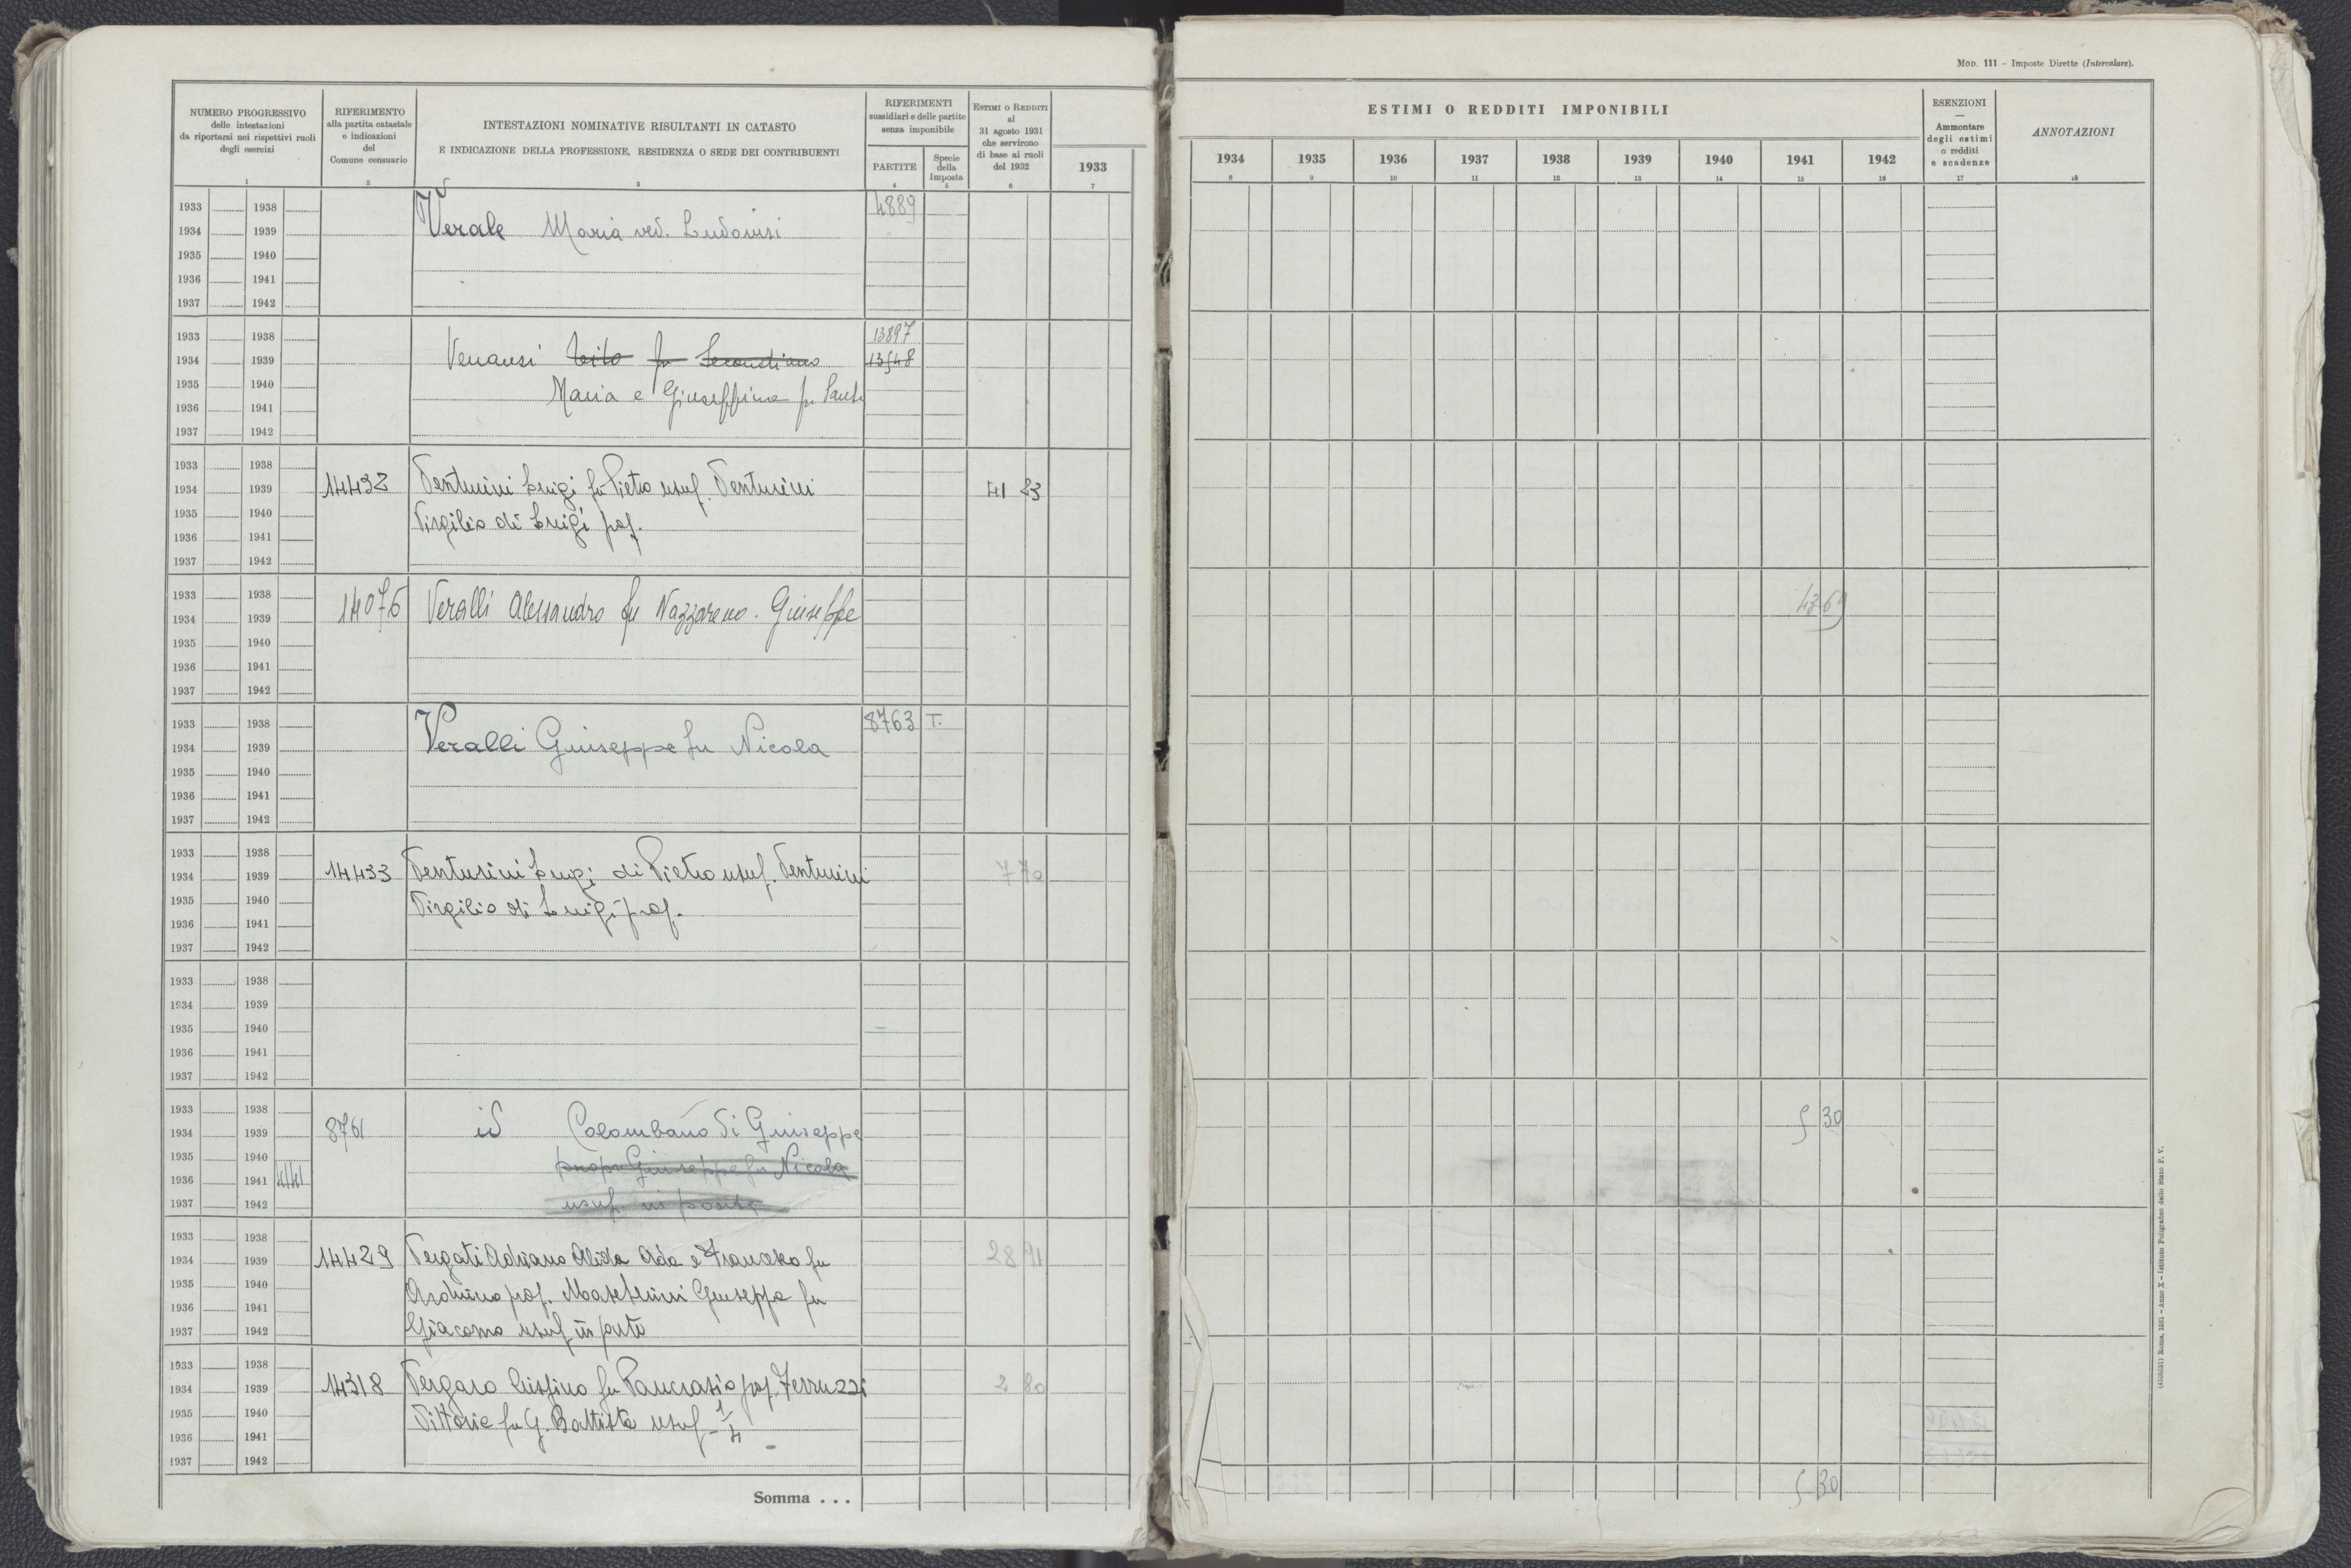 Mod. 111 - Imposte Dirette (Intercalare).
NUMERO PROGRESSIVO
delle intestazioni
da riportarsi nei rispettivi ruoli
degli esercizi
1
RIFERIMENTO
alla partita catastale
e indicazioni
del
Comune censuario
2
INTESTAZIONI NOMINATIVE RISULTANTI IN CATASTO
E INDICAZIONE DELLA PROFESSIONE, RESIDENZA O SEDE DEI CONTRIBUENTI
3
RIFERIMENTI
sussidiari e delle partite
senza imponibile
PARTITE
4
Specie
della
Imposta
5
Estimi o Redditi
al
31 agosto 1931
che servirono
di base ai ruoli
del 1932
6
1933
7
ESTIMI O REDDITI IMPONIBILI
1934 1935 1936 1937 1938 1939 1940 1941 1942
8 9 10 11 12 13 14 15 16
ESENZIONI
Ammontare
degli estimi
o redditi
e scadenze
17
ANNOTAZIONI
18
1933 1938 4889
1934 1939 Verale Maria ved. Ludovisi
1935 1940
1936 1941
1937 1942
1933 1938 13897
1934 1939 Venansi Tito fu Secondiano 13548
1935 1940 Maria e Giuseppina fu
1936 1941
1937 1942
1933 1938
1934 1939 14432 Venturini Luigi fu Pietro usuf. Venturini 41 23
1935 1940 Virgilio di Luigi prop.
1936 1941
1937 1942
1933 1938
1934 1939 14076 Veralli Alessandro fu Nazzareno. Giuseppe 43 69
1935 1940
1936 1941
1937 1942
1933 1938 8763 T.
1934 1939 Veralli Giuseppe fu Nicola
1935 1940
1936 1941
1937 1942
1933 1938
1934 1939 14433 Venturini Luigi di Pietro usuf. Venturini 7 70
1935 1940 Virgilio di Luigi prop.
1936 1941
1937 1942
1933 1938
1934 1939
1935 1940
1936 1941
1937 1942
1933 1938
1934 1939 8761 id Colombano di Giuseppe 5 30
1935 1940 propr Giuseppe fu Nicola
1936 1941
1937 1942 usuf in parte
1933 1938
1934 1939 14429 Vergati Adriano Alida Ada e Francesco fu 28 91
1935 1940 Arduino prop. Giuseppa fu
1936 1941
1937 1942 Giacomo usuf in parte
1933 1938
1934 1939 14318 Vergaro fu Pancrazio prop. Ferruzzi 2 80
1935 1940 Vittoria fu G. Battista usuf 1/4
1936 1941
1937 1942
Somma . . . 5 30
Roma, 1931 - Anno X - Istituto Poligrafico dello Stato P. V.